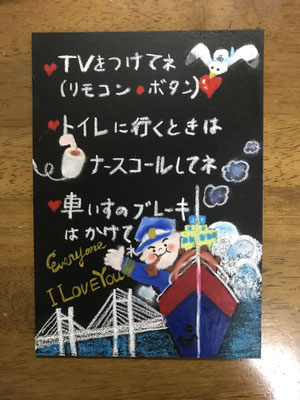 TVをつけてネ
(リモコン●ボタン)
トイレに行くときは
ナースコールしてネ
車いすのブレーキ
はかけてネ
Everyone
I LoveYou